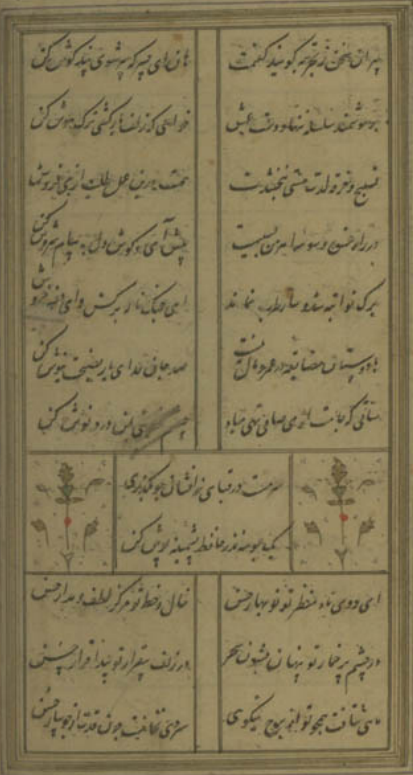 پیران سخن ز تجربه گویند گفتمت هان ای پسر که پیر شوی پند گوش کن
بر هوشمند سلسله ننهاد دست عشق خواهی که زلف یار کشی ترک هوش کن
تسبیح و خرقه لذت مستی نبخشدت همت درین عمل طلب از می فروش
در راه عشق وسوسه اهرمن بسیست پیش آی و گوش دل به پیام سروش کن
برگ نوا تبه شد و ساز طرب نماند ای چنگ ناله برکش و ای دف خروش
با دوستان مضایقه در عمر و مال نیست صد جان فدای یار نصیحت نیوش کن
ساقی که جامت از می صافی تهی مباد چشم دردنوش کن
سرمست در قبای زرافشان چو بگذری
یک بوسه نذر حافظ پشمینه پوش کن
ای روی ماه منظر تو نوبهار حسن خال و خط تو مرکز لطف و مدار حسن
در چشم پر خمار تو پنهان فسون سحر در زلف بیقرار تو پیدا قرار حسن
ماهی نتافت همچو تو از برج نیکوی سروی نخاست چون قدت از جویبار حسن